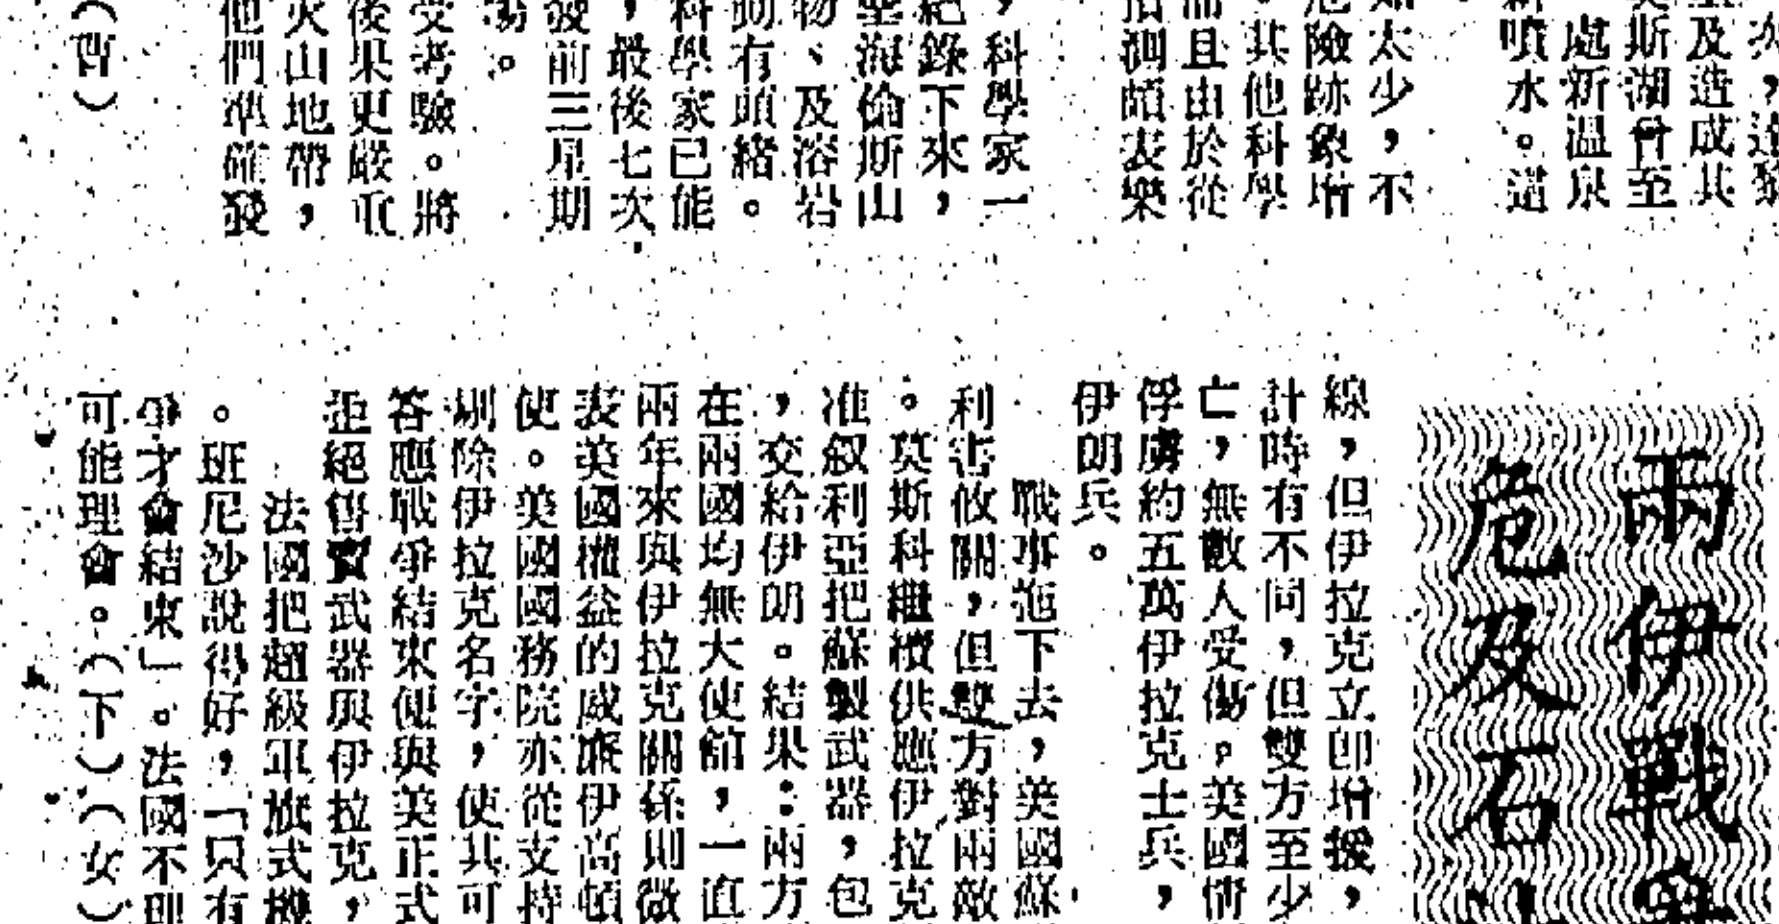 次，造
至及造成其
斯湖會至
處新溫泉
噴水。這
太少，不
危險跡象增
。其他科學
而且由於從
測頗表樂
，科學家一
紀錄下來，
聖海倫斯山
物、及溶岩
動有頭緒。
科學家已能
，最後七次
發前三星期
。
受考驗。將
後果更嚴重
火山地帶，
他們準確發
兩伊戰爭
危及石
線，但伊拉克立即增援，
計時有不同，但雙方至少
亡，無數人受傷。美國情
俘虜約五萬伊拉克士兵，
伊朗兵。
戰事拖下去，美國蘇
利害攸關，但雙方對兩敵
。莫斯科繼續供應伊拉克
准敘利亞把蘇製武器，包
，交給伊朗。結果：兩方
在兩國均無大使館，一直
兩年來與伊拉克關係則微
表美國權益的威廉伊高頓
使。美國國務院亦從支持
剔除伊拉克名字，使其可
答應戰爭結束便與美正式
拒絕售賣武器與伊拉克，
法國把超級軍旗式機
。班尼沙說得好，「只有
爭才會結束」。法國不理
可能理會。（下）（女）